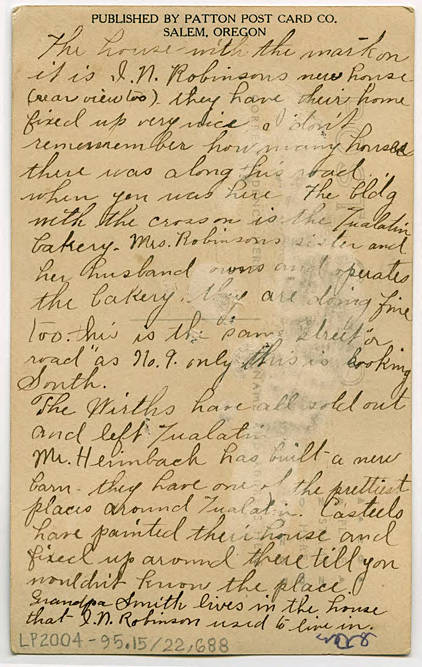 PUBLISHED BY PATTON POST CARD CO.
SALEM, OREGON
The house with the mark on
it is I.N. Robinsons new house
(rear view too). they have their home
fixed up very nice. I don't
rememember how many horses
there was along his road
when you was here. The bldg
with the cross on is the Tualatin
bakery. Mrs. Robinsons sister and
her husband owns and operates
the bakery. they are doing fine
too. this is the same street "or
road" as No. 9. only this is looking
South.
The Wirths have all sold out
and left Tualatin
Mr. Heimbach has built a new
barn. they have one of the prettiest
places around Tualatin. Casteels
have painted their house and
fixed up around there till you
wouldn't know the place.
Grandpa Smith lives in the house
that I.N. Robinson used to live in.
LP2004-95.15/22,688